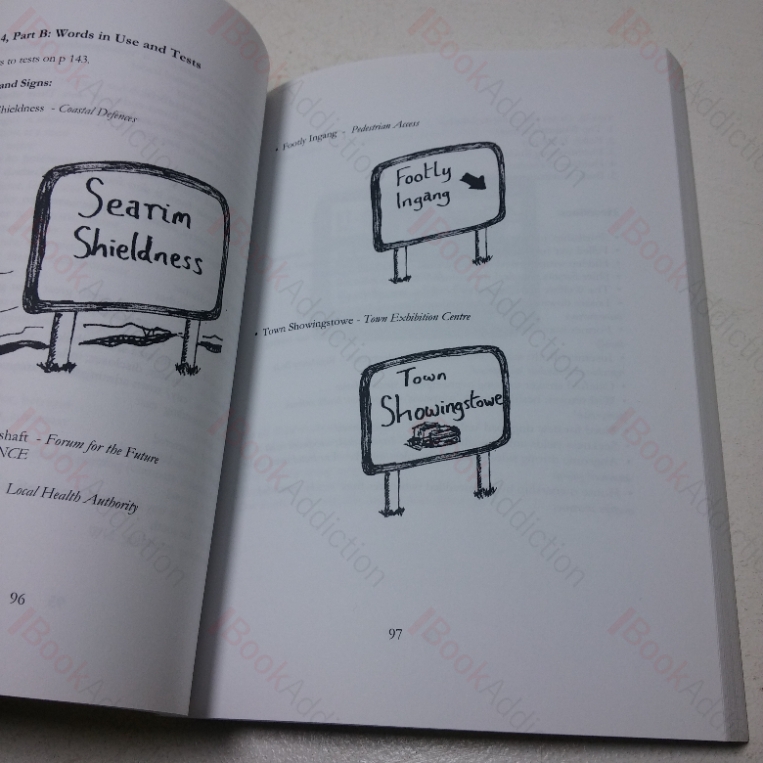 4, Part B: Words in Use and Tests
to tests on p 143.
and Signs:
Shieldness - Coastal Defences
Searim
Shieldness
shaft - Forum for the Future
NCE
Local Health Authority
96
• Footly Ingang - Pedestrian Access
Footly
Ingang
• Town Showingstowe - Town Exhibition Centre
Town
Showingstowe
97
BookAddiction